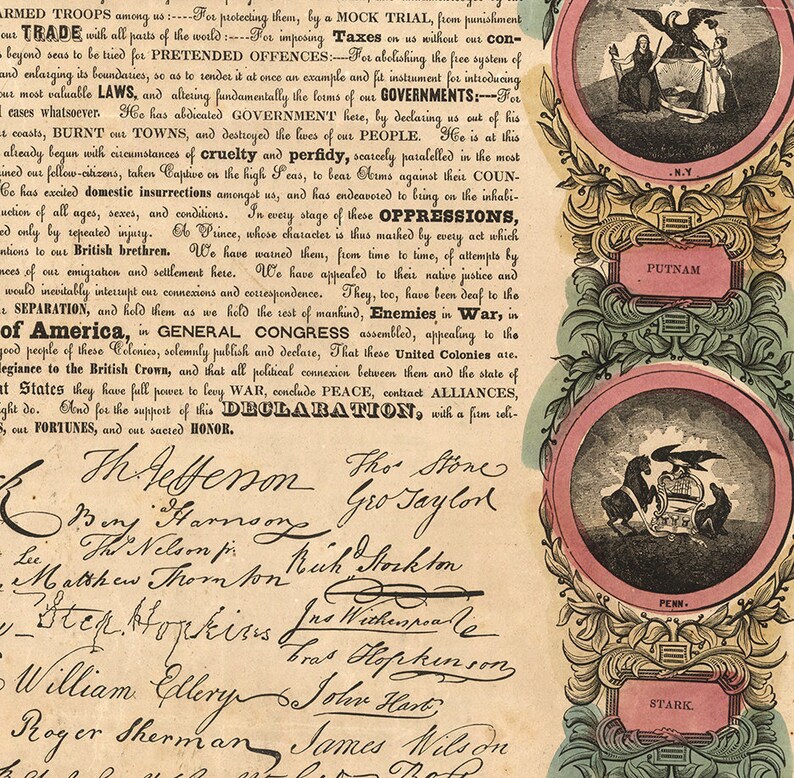 ARMED TROOPS among us:----For protecting them, by a MOCK TRIAL, from punishment
our TRADE with all parts of the world:----For imposing Taxes on us without our con-
s beyond seas to be tried for PRETENDED OFFENCES:---For abolishing the free system of
and enlarging its boundaries, so as to render it at once an example and fit instrument for introducing
our most valuable LAWS, and altering fundamentally the forms of our GOVERNMENTS:---For
l cases whatsoever. He has abdicated GOVERNMENT here, by declaring us out of his
r coasts, BURNT our TOWNS, and destroyed the lives of our PEOPLE. He is at this
already begun with circumstances of cruelty and perfidy, scarcely paralelled in the most
ined our fellow-citizens, taken Captive on the high Seas, to bear Arms against their COUN-
He has excited domestic insurrections amongst us, and has endeavored to bring on the inhabi-
uction of all ages, sexes, and conditions. In every stage of these OPPRESSIONS,
ed only by repeated injury. A Prince, whose character is thus marked by every act which
entions to our British brethren. We have warned them, from time to time, of attempts by
nces of our emigration and settlement here. We have appealed to their native justice and
would inevitably interrupt our connexions and correspondence. They, too, have been deaf to the
r SEPARATION, and hold them as we hold the rest of mankind, Enemies in War, in
of America, in GENERAL CONGRESS assembled, appealing to the
good people of these Colonies, solemnly publish and declare, That these United Colonies are,
legiance to the British Crown, and that all political connexion between them and the state of
nt States they have full power to levy WAR, conclude PEACE, contract ALLIANCES,
ight do. And for the support of this DECLARATION, with a firm reli-
S, our FORTUNES, and our sacred HONOR.
Th Jefferson
Thos Stone
Benj Harrison
Geo Taylor
Thos Nelson jr.
Lee
Matthew Thornton
Richd Stockton
Step. Hopkins
Jno Witherspoon
Fras Hopkinson
William Ellery
John Hart
Roger Sherman
James Wilson
Ross
N.Y
PUTNAM
PENN.
STARK.